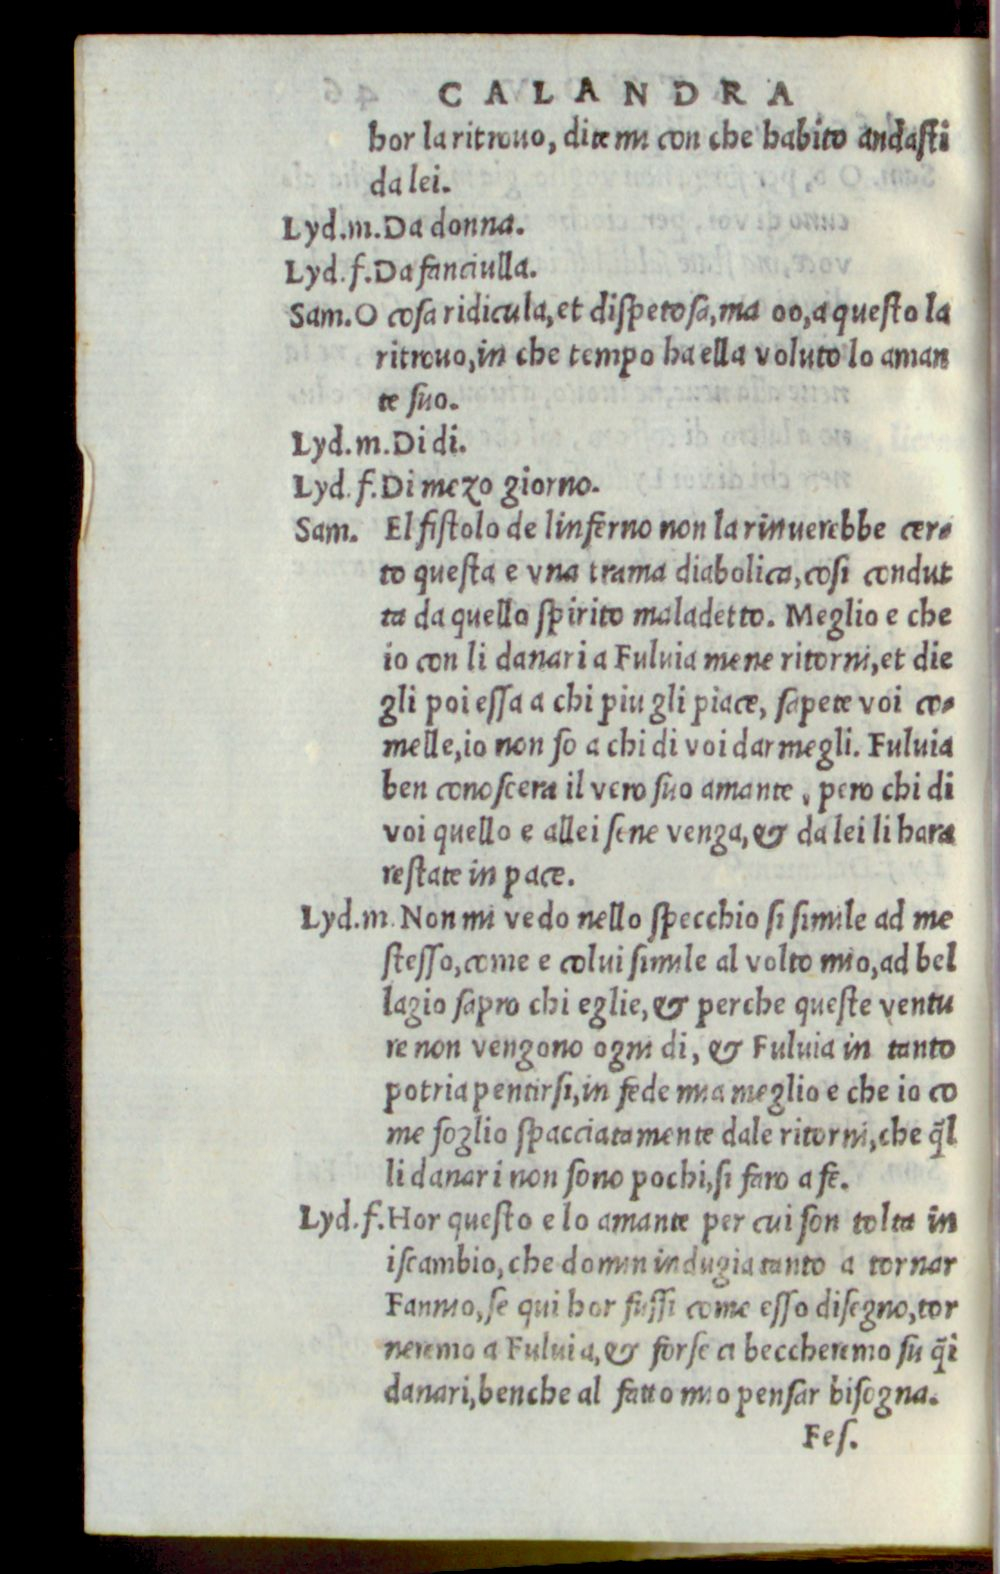 CALANDRA
hor la ritrouo, dite mi con che habito andaſti
da lei.
Lyd.m. Da donna.
Lyd.f. Da fanciulla.
Sam. O coſa ridicula, et diſpetoſa, ma oo, a queſto la
ritrouo, in che tempo ha ella voluto lo aman
te ſuo.
Lyd.m. Di di.
Lyd.f. Di mezo giorno.
Sam. El fiſtolo de linferno non la rinuerebbe cer-
to queſta e vna trama diabolica, coſi condut
ta da quello ſpirito maladetto. Meglio e che
io con li danari a Fuluia me ne ritorni, et die
gli poi eſſa a chi piu gli piace, ſapete voi co-
melle, io non ſo a chi di voi darmegli. Fuluia
ben conoſcera il vero ſuo amante, pero chi di
voi quello e allei ſene venga, & da lei li hara
reſtate in pace.
Lyd.m. Non mi vedo nello ſpecchio ſi ſimile ad me
ſteſſo, come e colui ſimile al volto mio, ad bel
lagio ſapro chi eglie, & perche queſte ventu
re non vengono ogni di, & Fuluia in tanto
potria pentirſi, in fede mia meglio e che io co
me ſoglio ſpacciatamente dale ritorni, che q̃l
li danari non ſono pochi, ſi faro a fe.
Lyd.f. Hor queſto e lo amante per cui ſon tolta in
iſcambio, che domin indugia tanto a tornar
Fannio, ſe qui hor fuſſi come eſſo diſegno, tor
neremo a Fuluia, & forſe ci beccheremo ſu q̃i
danari, benche al fatto mio penſar biſogna.
Feſ.